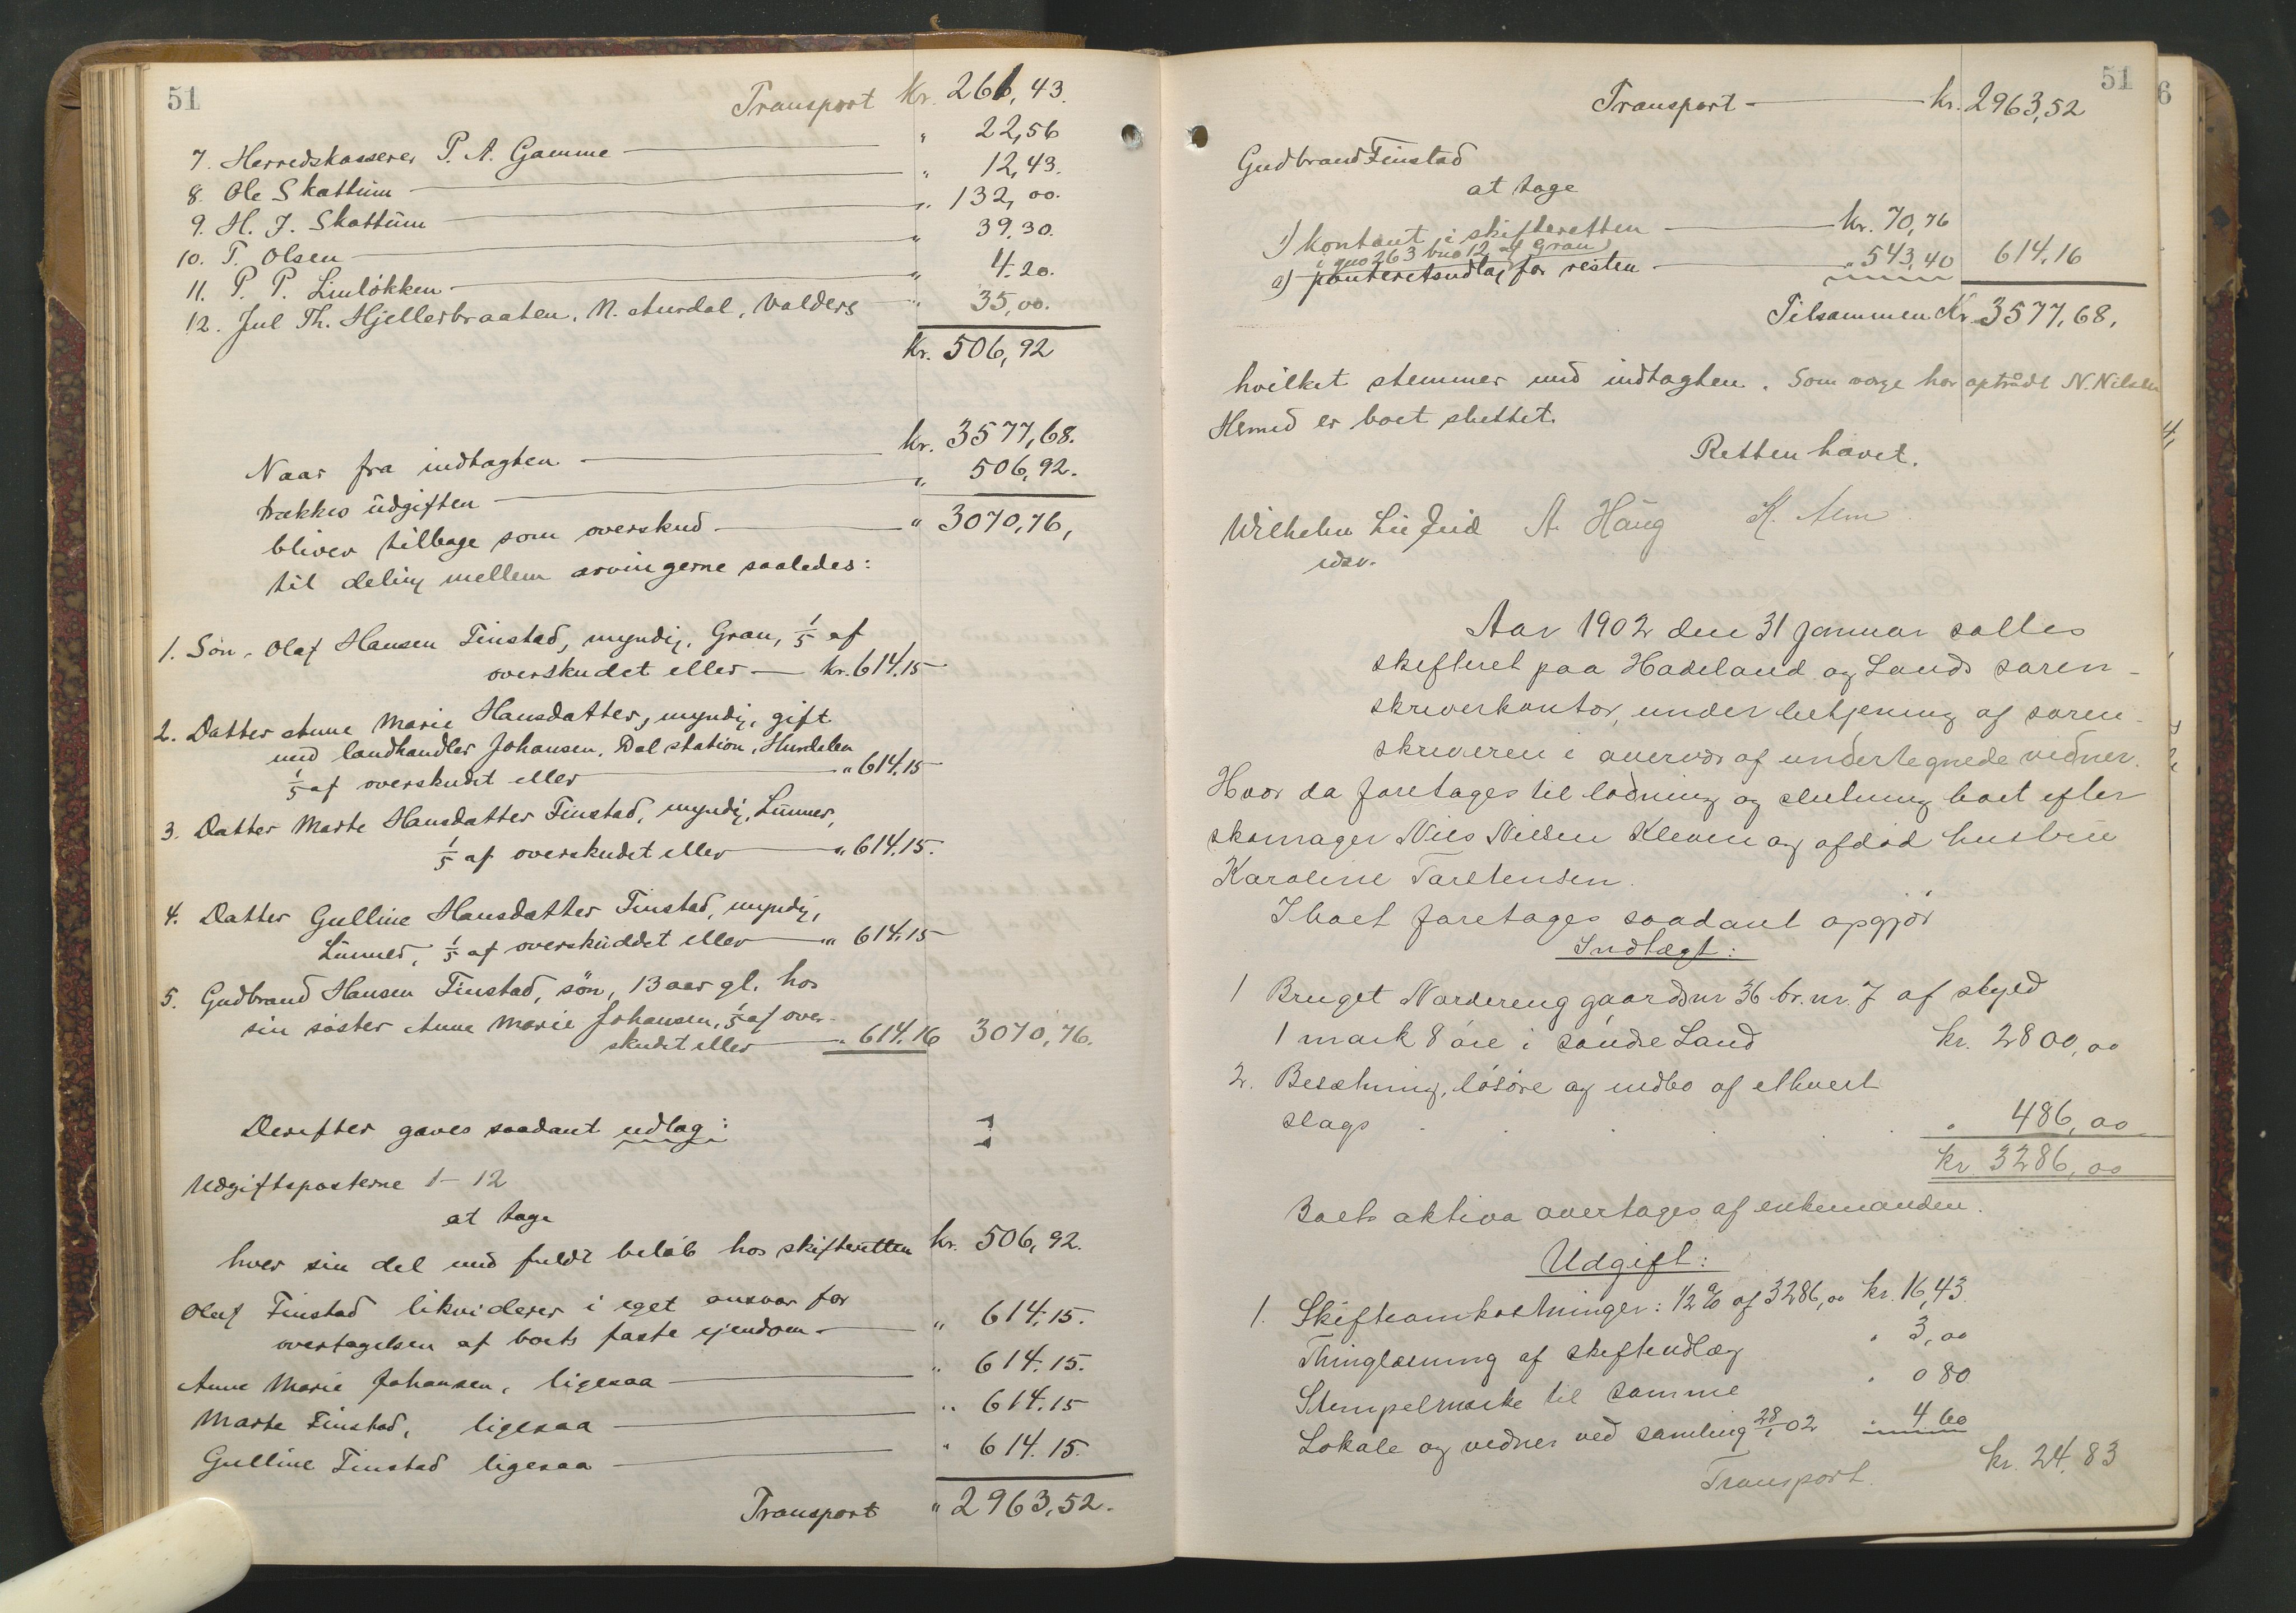 51
Transport Kr. 261,43.
7. Herredskasserer P. A. Gamme — " 22,56
8. Ole Skattum — " 12,43.
9. H. J. Skattum — " 132,00.
10. T. Olsen — " 39.30.
11. P. P. Linløkken — " 4.20.
12. Jul Th. Hjellerbraaten, N. Aurdal, Valders — " 35,00.
Kr. 506,92
Naar fra indtægten — kr. 3577,68.
trækkes udgiften — " 506,92.
bliver tilbage som overskud — " 3070,76,
til deling mellem arvingerne saaledes:
1. Søn, Olaf Hansen Finstad, myndig, Gran, 1/5 af
overskudet eller — kr. 614.15
2. Datter Anne Marie Hansdatter, myndig, gift
med landhandler Johansen, Dal station, Hurdalen
1/5 af overskudet eller — " 614.15
3. Datter Marte Hansdatter Finstad, myndig, Lunner,
1/5 af overskudet eller — " 614.15.
4. Datter Gulline Hansdatter Finstad, myndig,
Lunner, 1/5 af overskuddet eller — " 614.15
5. Gudbrand Hansen Finstad, søn, 13 aar gl. hos
sin søster Anne Marie Johansen, 1/5 af over-
skudet eller — " 614.16 3070,76.
Derefter gaves saadant udlæg:
Udgiftsposterne 1-12
at tage
hver sin del med fuldt beløb hos skifteretten kr. 506,92.
Olaf Finstad likviderer i eget ansvar for
overtagelsen af boets faste ejendom — " 614.15.
Anne Marie Johansen, ligesaa — " 614.15.
Marte Finstad, ligesaa — " 614.15
Gulline Finstad ligesaa — " 614.15.
Transport " 2963,52.
51
6
Transport — kr. 2963,52
Gudbrand Finstad
at tage
1) kontant i skifteretten — kr. 70,76
i gno 263 bno 12 af Gran
2) panteretsudlæg for resten — " 543,40 614.16
Tilsammen Kr. 3577,68,
hvilket stemmer med indtægten. Som værge har optrådt N. Nilsen
Hermed er boet sluttet.
Retten hævet.
Wilhelm Lie Juid A. Haug K. Alm
Aar 1902 den 31 januar sattes
skifteret paa Hadeland og Lands soren-
skriverkontor, under betjening af soren-
skriveren i overvær af undertegnede vidner.
Hvor da foretages til lodning og slutning boet efter
skomager Nils Nilsen Kleven og afdød hustru
Karoline Tarstensen.
I boet foretages saadant opgjør
Indtægt:
1 Bruget Nordereng gaardsnr 36 br. nr. 7 af skyld
1 mark 8 øre i søndre Land kr. 2800,00
2. Besætning, løsøre og indbo af ethvert
slags " 486,00
kr 3286,00
Boets aktiva overtages af enkemanden.
Udgift:
1. Skifteomkostninger: 1/2 % af 3286,00 kr. 16,43
Thinglæsning af skifteudlæg " 3,00
Stempelmærke til samme " 0 80
Lokale og vidner ved samling 28/1 02 " 4 60
kr. 24,83
Transport.